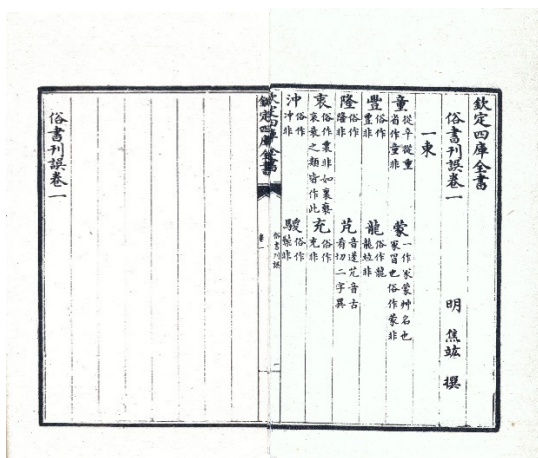 欽定四庫全書
俗書刊誤卷一
明 焦竑 撰
一東
童從辛從重省作童非 蒙一作冡蒙艸名也冡冒也俗作蒙非
豐俗作豊非 龍俗作龍竝非
隆俗作隆非 芃音蓬艽音古肴切二字異
衷俗作非如裏之類皆作此 充俗作充非
沖俗作冲非 騣俗作非
欽定四庫全書
俗書刊誤
卷一
俗書刊誤卷一